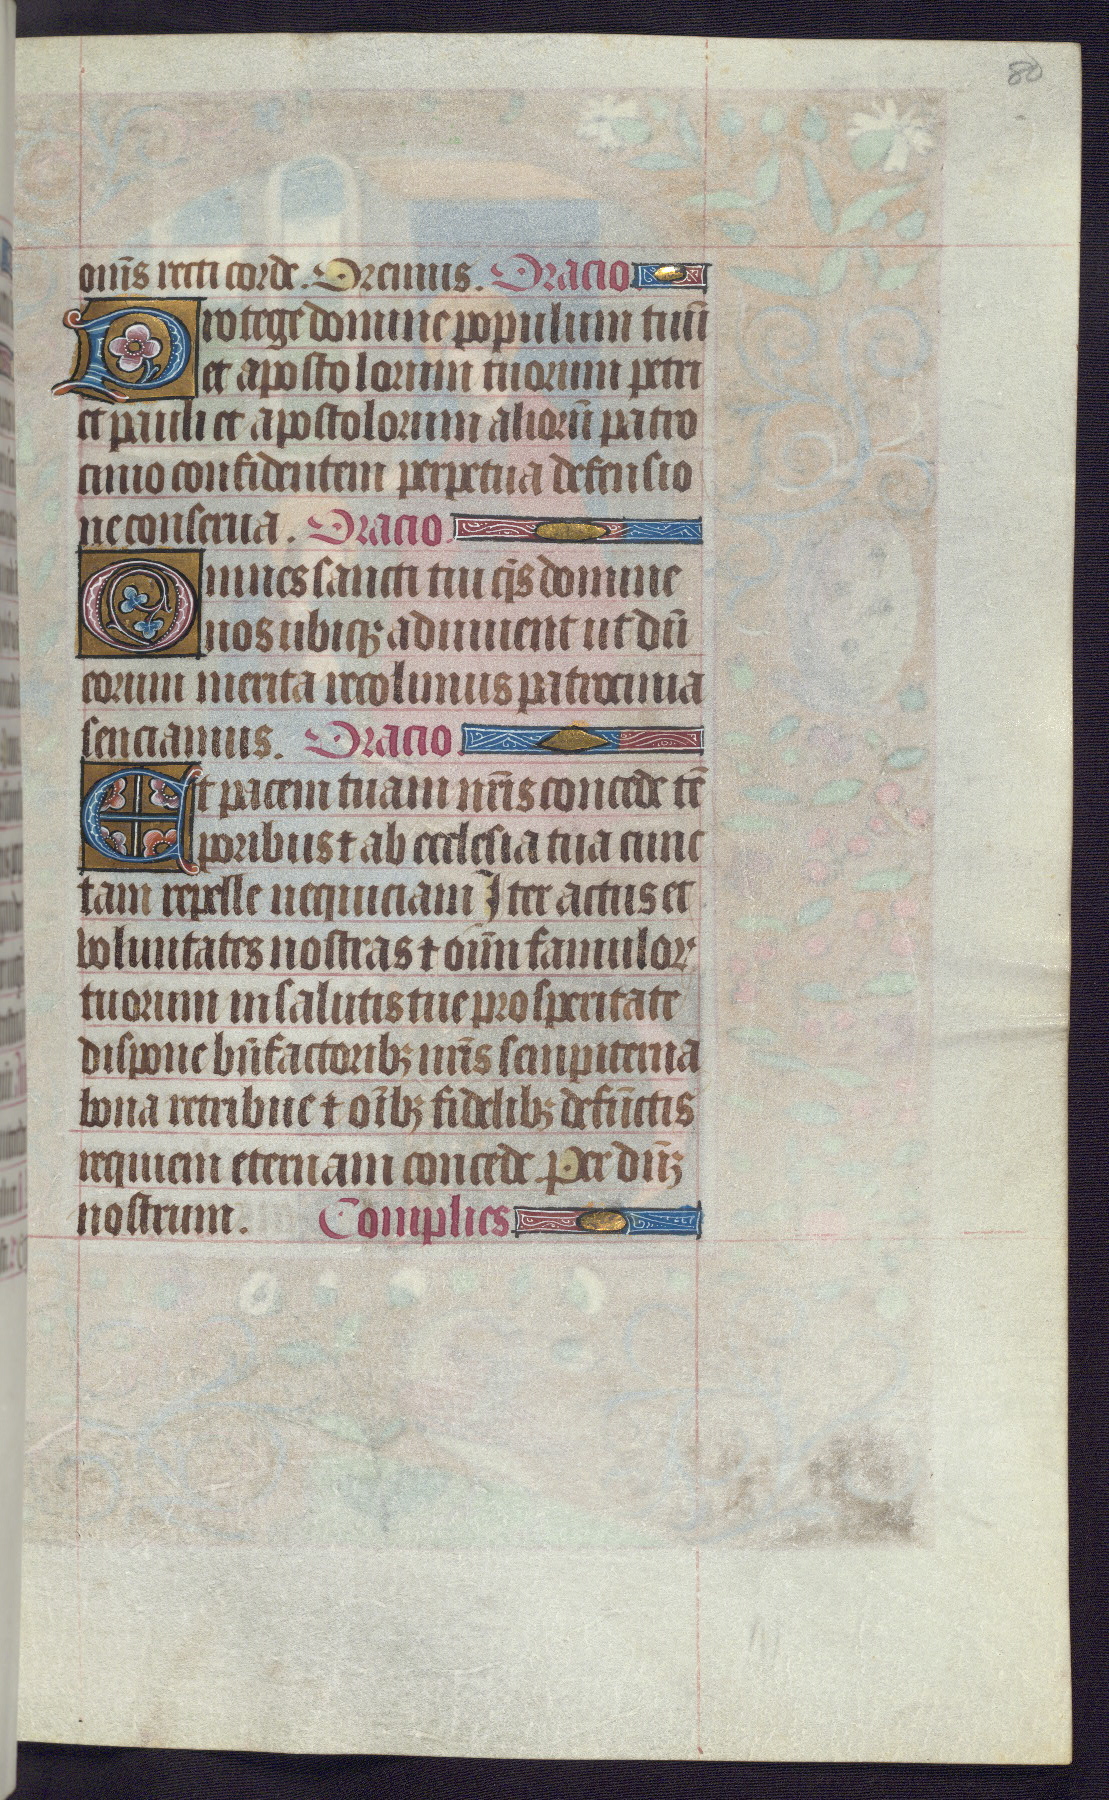 80
om̄s recti corde. Oremus. Oracio
Protege domine populum tuū
et apostolorum tuorum petri
et pauli et apostolorum alioꝝ̄ patro
cinio confidentem perpetua defensio
ne conserua. Oracio
Omnes sancti tui q̄s domine
nos ubiqꝫ adiuuent ut dū
eorum merita recolimus patrocinia
senciamus. Oracio
Et pacem tuam nr̄is concede tē
poribus ⁊ ab ecclesia tua cunc
tam repelle nequiciam Iter actus et
voluntates nostras ⁊ oīm famuloꝝ
tuorum in salutis tue prosperitate
dispone bn̄factoribꝫ nr̄is sempiterna
bona retribue ⁊ oībꝫ fidelibꝫ defūctis
requiem eternam concede. Per dn̄ꝫ
nostrum. Complies